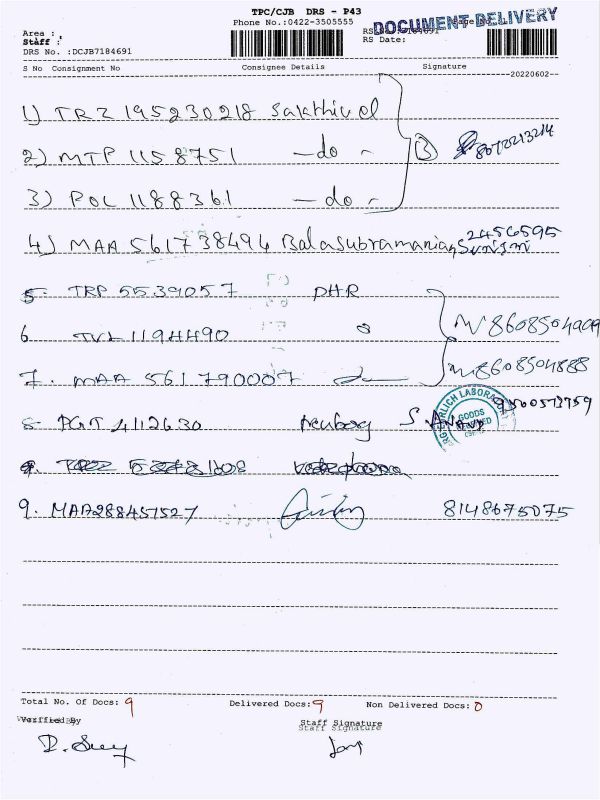 TPC/CJB DRS - P43
Phone No.:0422-3505555
DOCUMENT DELIVERY
Area :
Staff :
RS Date:
DRS No. :DCJB7184691
S No Consignment No Consignee Details Signature
20220602
1) TRZ 195230218 Sakthivel
2) MTP 1158751 -do- (3)
3) POL 1188361 -do-
4) MAA 561738494 Balasubramanian 2456595
5. TRP 5539057 DHR
6 TVL 1194490 8608504909
7. MAA 561790007 8608504888
8- PGT 4112630 S.Anand 9500573759
GOODS
9. MAA288451527 8148675075
Total No. Of Docs: 9 Delivered Docs: 9 Non Delivered Docs: 0
Verified By Staff Signature
Staff Signature